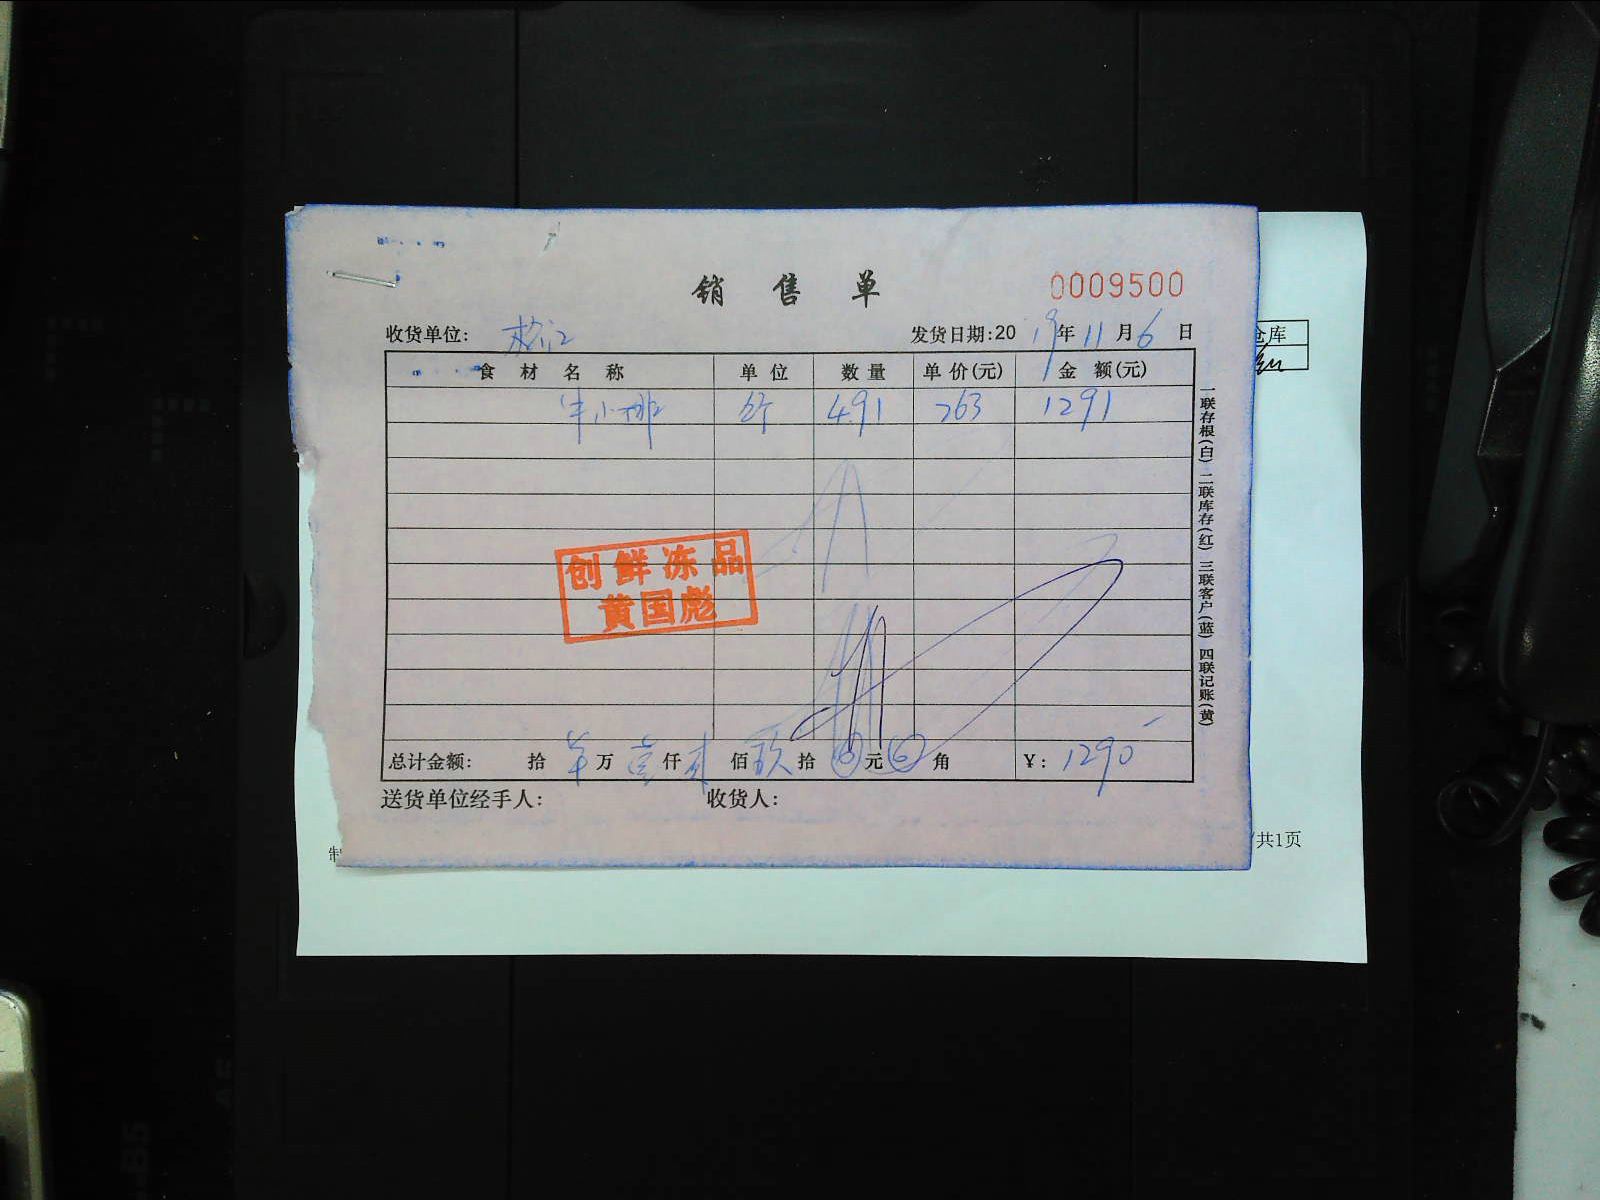 销售单 0009500
收货单位: 发货日期:2019年11月6日 仓库
食材名称 单位 数量 单价(元) 金额(元)
斤 491 263 1291
创鲜冻品
黄国彪
总计金额: 拾 万 壹仟 佰 玖拾 元 角 ¥: 1290
送货单位经手人: 收货人:
一联存根(白) 二联库存(红) 三联客户(蓝) 四联记账(黄)
制
/共1页